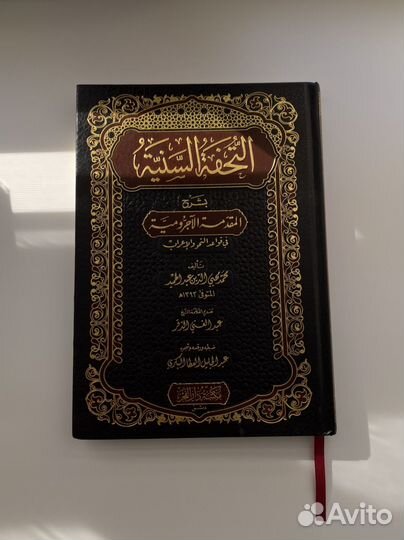 التُّحْفَةُ السَّنِيَّةُ
بشرح
المقدمة الآجرومية
في قواعد النحو والإعراب
تأليف
محمد محيي الدين عبد الحميد
المتوفى ١٣٩٣هـ
عبد الغني الدقر
عبد الجليل العطا البكري
مكتبة دار الفجر
دمشق
Avito